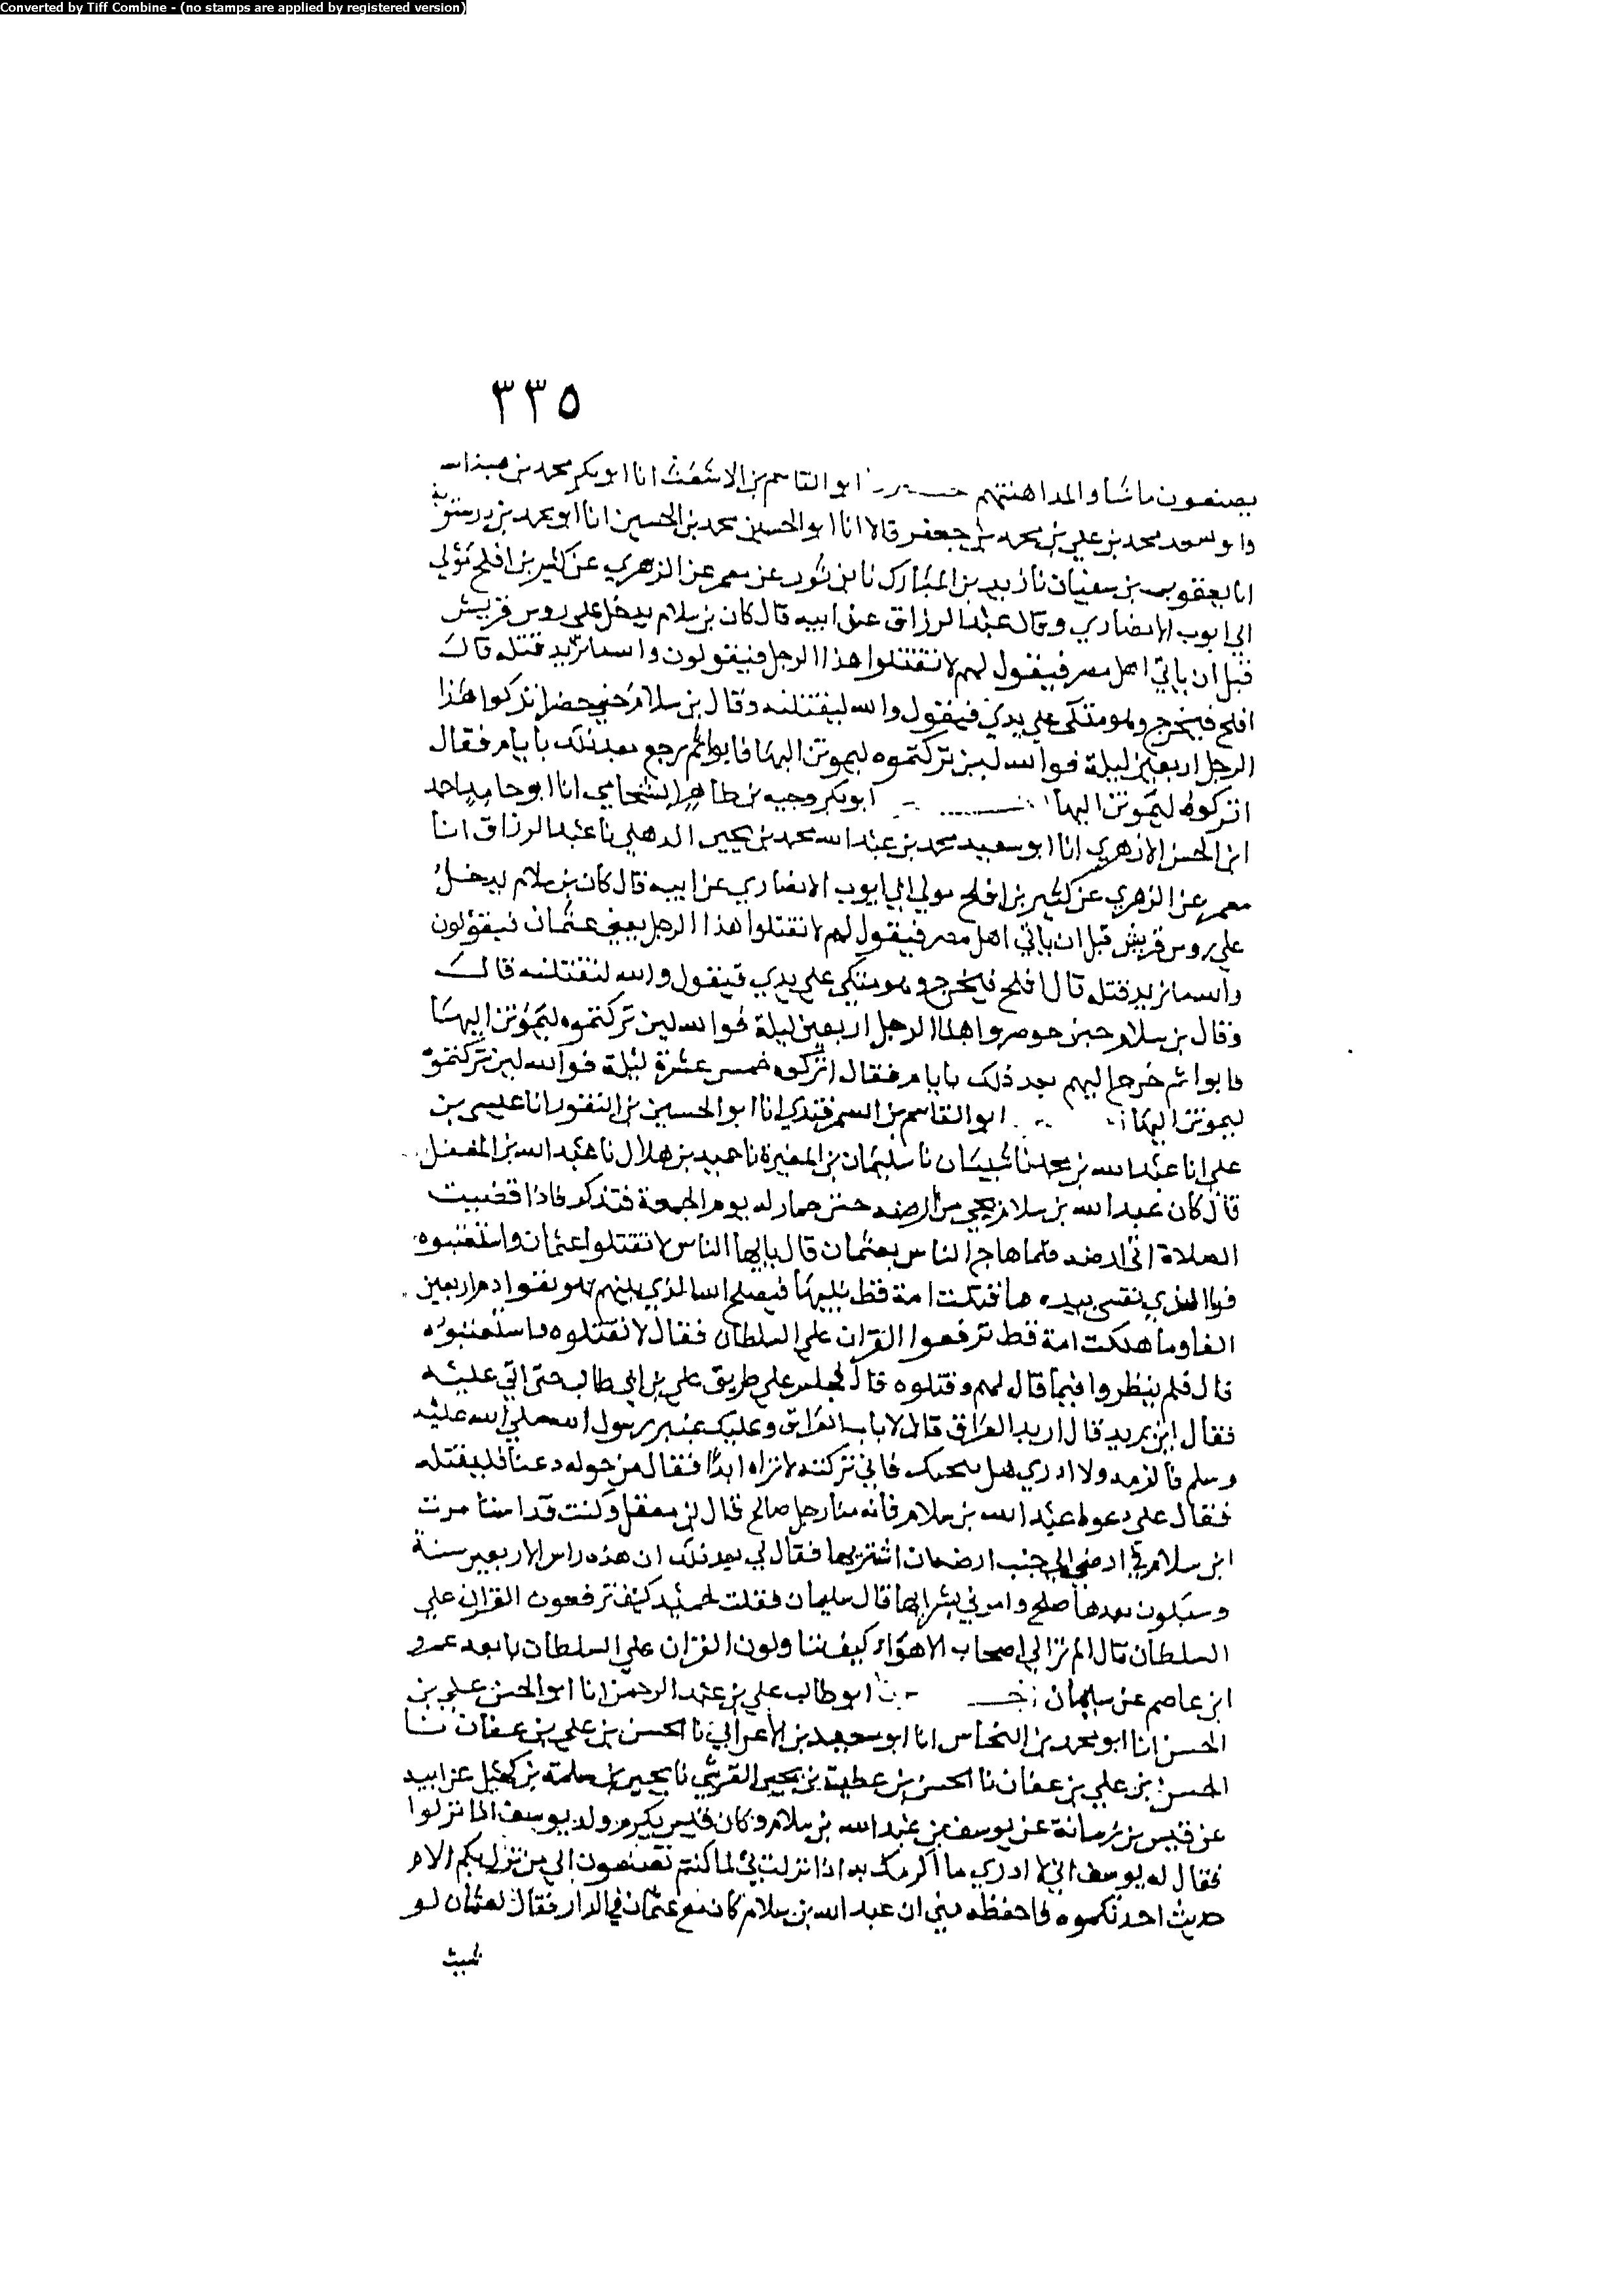 Converted by Tiff Combine - (no stamps are applied by registered version)
٣٣٥
يصنعون ماشاو المداهنتهم ابو القاسم بن الاشعث انا ابو بكر محمد بن هبة الله
وابو سعد محمد بن علي بن محمد بن جعفر قالا انا ابو الحسين محمد بن الحسين انا ابو محمد بن درستويه
انا يعقوب بن سفيان نا زيد بن المبارك نا ابن ثور عن معمر عن الزهري عن كثير بن افلح مولي
ابي ايوب الانصاري وقال عبد الرزاق عن ابيه قال كان بن سلام يدخل علي روس قريش
قبل ان ياتي اهل مصر فيقول لهم لا تقتلوا هذا الرجل فيقولون والله ما نريد قتله قال
افلح فيخرج وهو متكي علي يدي فيقول والله ليقتلنه وقال بن سلام حين حضر اتركوا هذا
الرجل اربعين ليلة فوالله لين تركتموه ليموتن اليها فابوا ثم رجع بعد ذلك بايام فقال
اتركوه ليموتن اليها ابو بكر وجيه بن طاهر الشحامي انا ابو حامد احمد
ابن الحسن الازهري انا ابو سعيد محمد بن عبد الله محمد بن يحيى الذهلي نا عبد الرزاق انا
معمر عن الزهري عن كثير بن افلح مولي ابي ايوب الانصاري عن ابيه قال كان بن سلام يدخل
علي روس قريش قبل ان ياتي اهل مصر فيقول لهم لا تقتلوا هذا الرجل يعني عثمان فيقولون
والله ما نريد قتله قال افلح فيخرج وهو متكي علي يدي فيقول والله لتقتلنه قال
وقال بن سلام حين حوصروا هذا الرجل اربعين ليلة فوالله لين تركتموه ليموتن اليها
فابوا ثم خرج اليهم بعد ذلك بايام فقال اتركوه خمس عشرة ليلة فوالله لين تركتموه
ليموتن اليها ابو القاسم بن السمرقندي انا ابو الحسين بن النقور انا عيسى بن
علي انا عبد الله بن محمد نا شيبان نا سليمان بن المغيرة نا حميد بن هلال نا عبد الله بن المغفل
قال كان عبد الله بن سلام يجي من ارضه حمار له يوم الجمعة فاذا قضيت
الصلاة اتي ارضه فلما هاج الناس بعثمان قال يايها الناس لا تقتلوا عثمان واستعتبوه
فوالذي نفسي بيده ما قتلت امة قط نبيها فيصلح الله الذي بينهم دم اربعين
الفا وما هلكت امة قط ترفعوا القران علي السلطان فقال لا تقتلوه واستعتبوه
قال فلم ينظروا فيما قال لهم وقتلوه قال فجلس علي طريق علي بن ابي طالب حتى اتي عليه
فقال اين يريد قال اريد العراق قال لا تات العراق وعليك بمنبر رسول الله صلي الله عليه
وسلم فالزمه ولا ادري هل ينجيك فاني تركته لا تراه ابدا فقال من حوله دعنا فليقتله
فقال علي دعوا عبد الله بن سلام فانه منا رجل صالح قال ابن مغفل وكنت
ابن سلام في ارض الي جنب ارضه ان اشتريها فقال لي بعد ذلك ان هذه راس الاربعين سنة
وسيكون بعدها صلح وامرني بشرايها قال سليمان فقلت لحميد كيف ترفعون القران علي
السلطان قال الم تر الي اصحاب الاهواء كيف يتاولون القران علي السلطان تابعه عمرو
ابن عاصم عن سليمان ابو طالب علي بن عبد الرحمن انا ابو الحسن علي بن
الحسن انا ابو محمد بن النحاس انا ابو سعيد بن الاعرابي نا الحسن بن علي بن عفان نا
الحسن بن علي بن عفان نا الحسن بن عطية بن يحيى القرشي نا يحيى بن سلمة بن كهيل عن ابيه
عن قيس بن رمانة عن يوسف بن عبد الله بن سلام وكان قيس يكرم ولد يوسف اذا نزلوا
فقال له يوسف اني لا ادري ما اكرمك به اذا نزلت بي لما كنتم تصنعون الي من نزل بكم الا
حديث احدثكموه فاحفظه مني ان عبد الله بن سلام كان مع عثمان في الدار فقال لعثمان لو